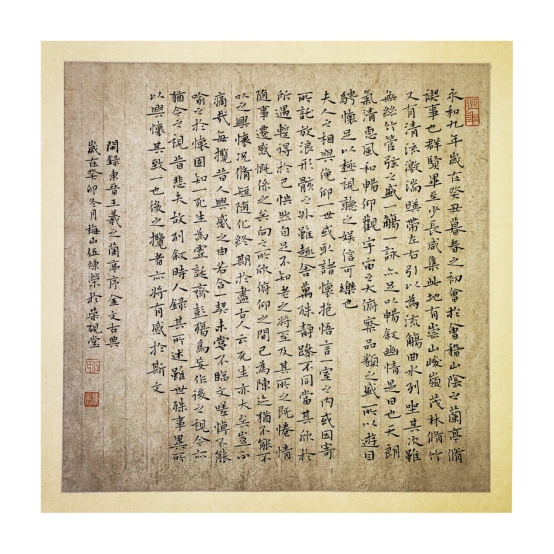 永和九年歲在癸丑暮春之初會於會稽山陰之蘭亭脩
禊事也群賢畢至少長咸集此地有崇山峻嶺茂林脩竹
又有清流激湍暎帶左右引以為流觴曲水列坐其次雖
無絲竹管弦之盛一觴一詠亦足以暢敘幽情是日也天朗
氣清惠風和暢仰觀宇宙之大俯察品類之盛所以遊目
騁懷足以極視聽之娛信可樂也
夫人之相與俯仰一世或取諸懷抱悟言一室之內或因寄
所託放浪形骸之外雖趣舍萬殊靜躁不同當其欣於
所遇暫得於己快然自足不知老之將至及其所之既惓情
隨事遷感慨係之矣向之所欣俯仰之間已為陳迹猶不能不
以之興懷況脩短隨化終期於盡古人云死生亦大矣豈不
痛哉每攬昔人興感之由若合一契未嘗不臨文嗟悼不能
喻之於懷固知一死生為虛誕齊彭殤為妄作後之視今亦
猶今之視昔悲夫故列敘時人錄其所述雖世殊事異所
以興懷其致一也後之攬者亦將有感於斯文
間錄東晉王羲之蘭亭序全文古典
歲在癸卯冬月梅山伍煉榮於榮硯堂